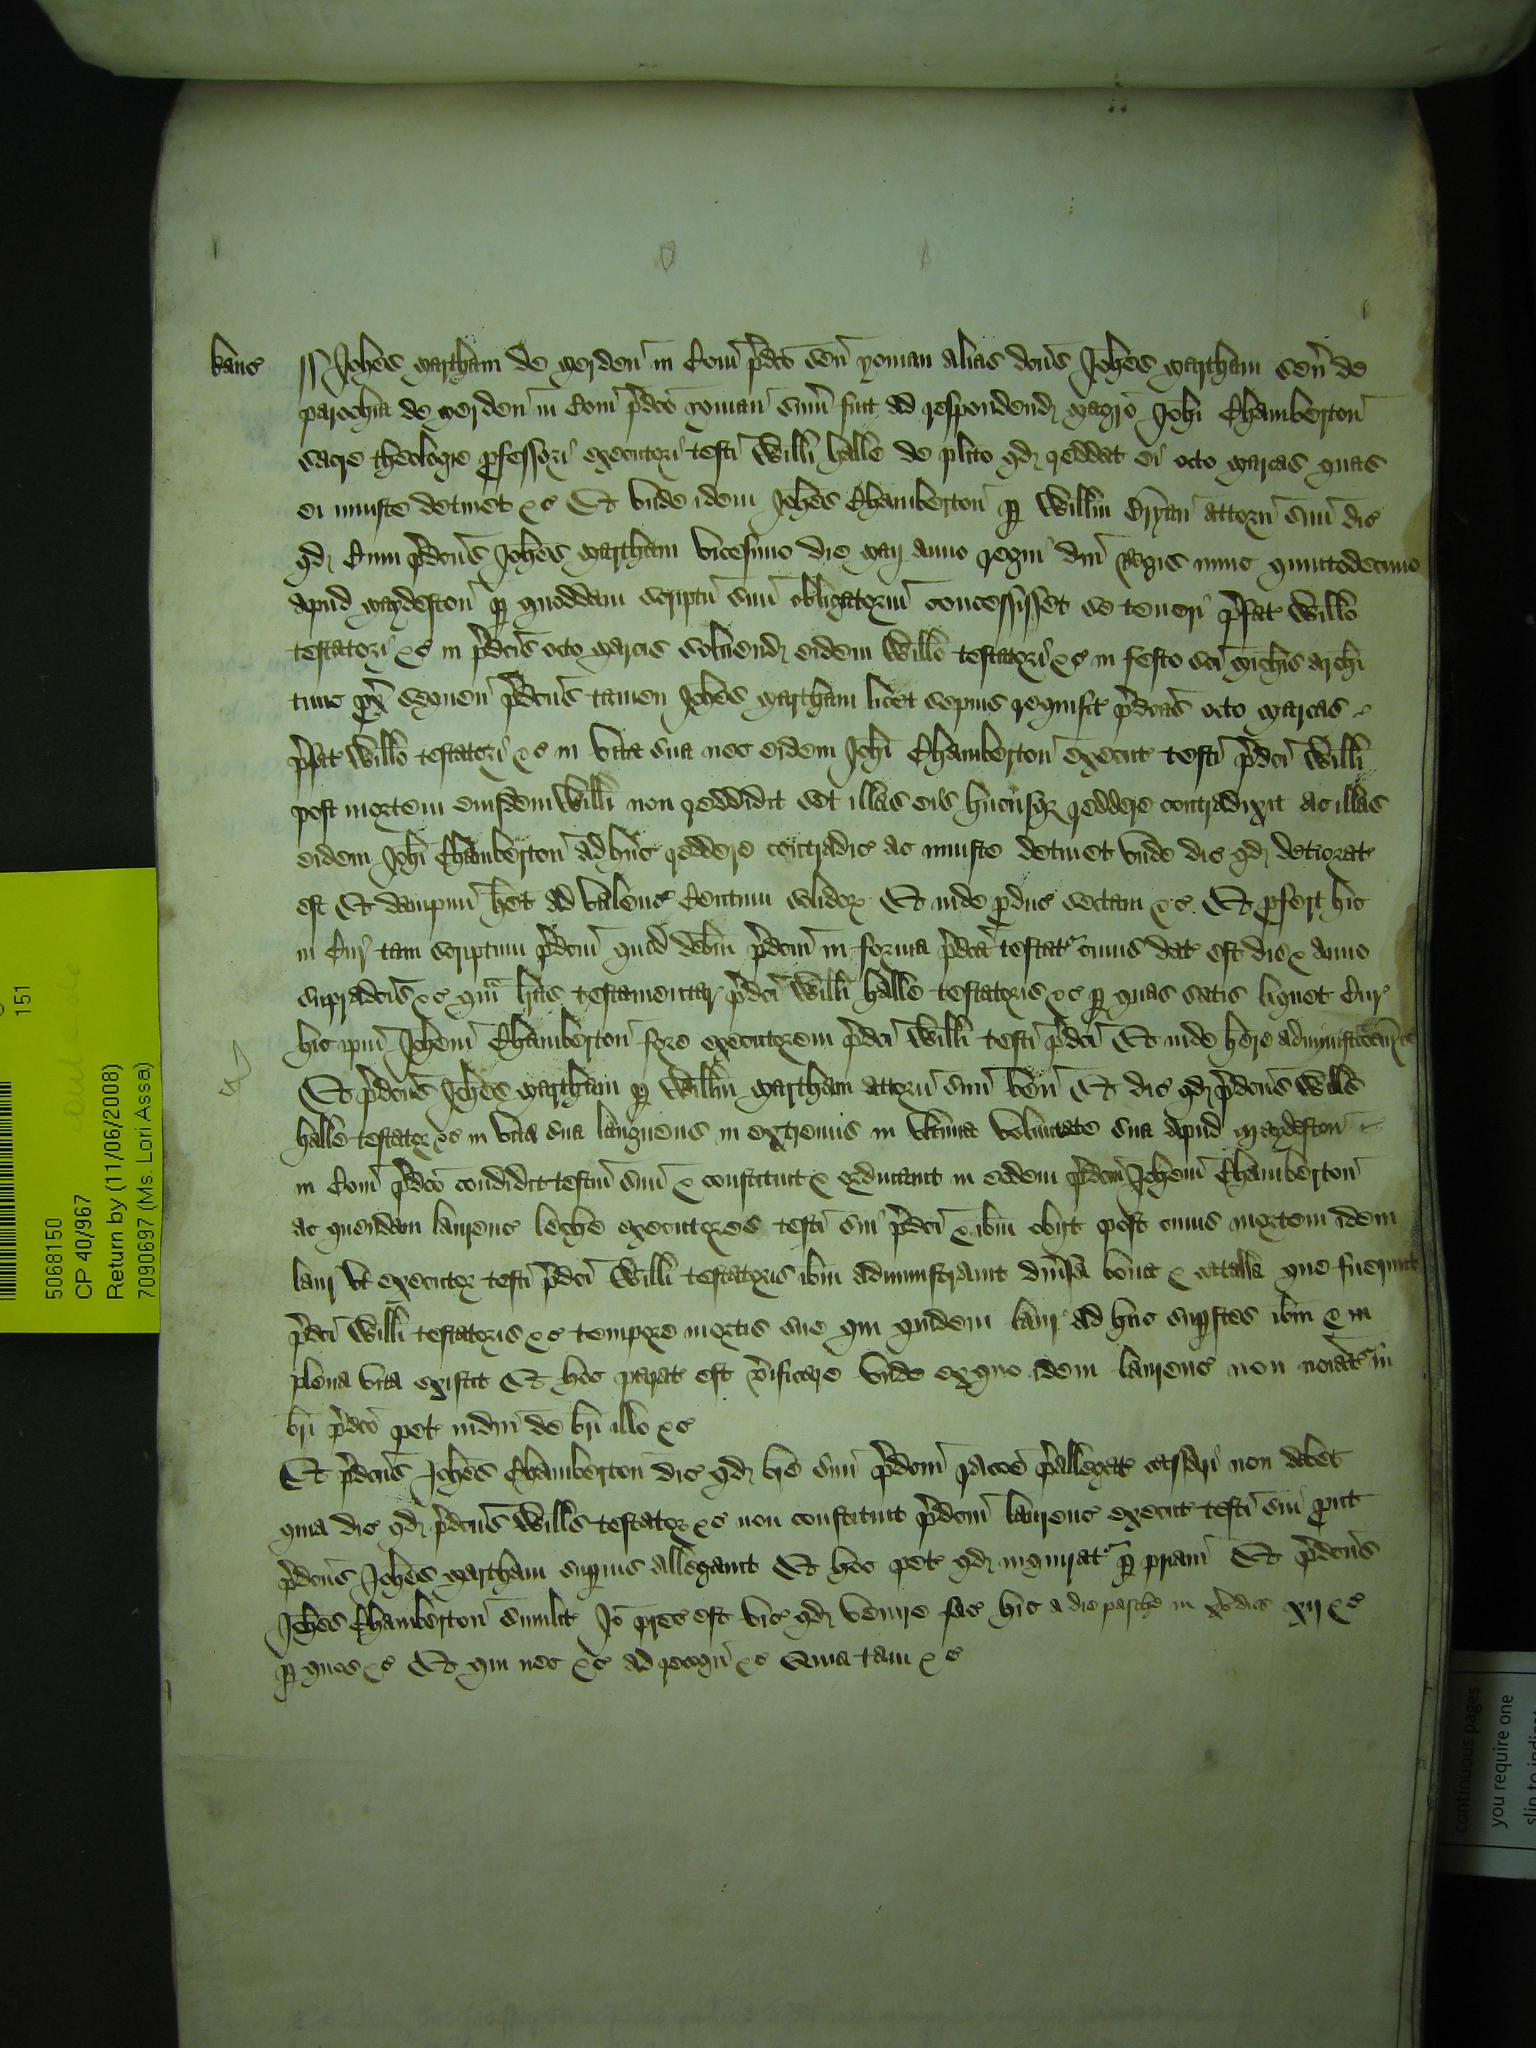 kanc
ss Johes Martham de Merden in Com pdco sen yoman alias dcus Johes Martham sen de
parochia de Merden in Com pdco yoman sum fuit ad respondend Magro Johi Chamberton
sacre theologie pfessori executori testi Willi Halle de plito qd reddat ei octo marcas quas
ei iniuste detinet &c Et unde idem Johes Chamberton p Willm Bryan attorn suu dic
qd Cum pdcus Johes Martham vicesimo die Maij anno regni dni Regis nunc quintodecimo
apud Maydeston p quoddam scriptu suu obligatoriu concessisset se teneri pfat Willo
testatori &c in pdcis octo marcis solvend eidem Willo testatori &c in festo sci Michis archi
tunc px sequen pdcus tamen Johes Martham licet sepius requisit pdcas octo marcas
pfat Willo testatori &c in vita sua nec eidem Johi Chamberton execut testi pdci Willi
post mortem eiusdem Willi non reddidit set illas eis hucusq reddere contradixit ac illas
eidem Johi Chamberton adhuc reddere contradic ac iniuste detinet unde dic qd detiorat
est Et dampnu het ad valenc Centum solidor Et inde pduc sectam &c Et pfert hic
in Cur tam scriptum pdcm quod debm pdcm in forma pdca testat cuius dat est die & anno
supradcis &c qm lras testamentar pdci Willi Halle testatoris &c p quas satis liquet Cur
hic ipm Johem Chamberton fore executorem pdci Willi testi pdci Et inde here administracoem &c
Et pdcus Johes Martham p Willm Martham attorn suu ven Et dic qd pdcus Wills
Halle testator &c in vita sua languens in extremis in ultima voluntate sua apud Maydeston
in Com pdco condidit testm suu & constituit & ordinavit in eodem pdcm Johem Chamberton
ac quendam laurenc leche executores testi sui pdci & ibm obijt post cuius mortem idem
laur ut executor testi pdci Willi testatoris ibm administravit divsa bona & catalla que fuerunt
pdci Willi testatoris &c tempore mortis sue qui quidem laur ad huc supstes ibm & in
plena vita existit Et hoc parat est vificare unde exquo idem laurenc non noiat in
bri pdco pet iudm de bri illo &c
Et pdcus Johes Chamberton dic qd bre suu pdcm racoe pallegat cassari non debet
quia dic qd pdcus Wills testator &c non constituit pdcm laurenc execut testi sui put
pdcus Johes Martham supius allegavit Et hoc pet qd inquirat p priam Et pdcus
Johes Chamberton similit Jo prec est vic qd venire fac hic a die pasche in xv dies xij &c
p quos &c Et qui nec &c ad recogn &c Quia tam &c
151
5068150
CP 40/967
Return by (11/06/2008)
7090697 (Ms. Lori Assa)
continuous pages
you require one